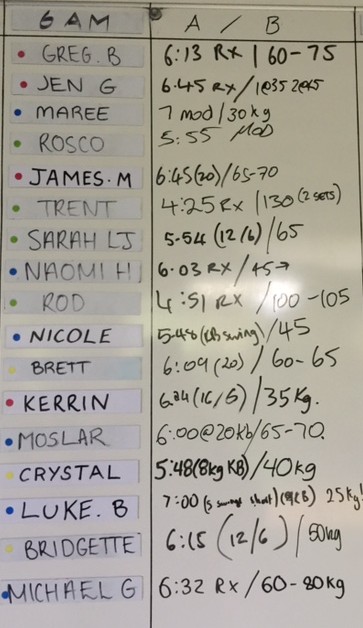 6 AM A / B
GREG. B 6:13 RX | 60-75
JEN G 6.45 RX / 1@35 2@45
MAREE 7 mod / 30kg
ROSCO 5:55 MOD
JAMES. M 6:45 (20) / 65-70
TRENT 4:25 RX / 130 (2 sets)
SARAH LJ 5.54 (12/6) / 65
NAOMI H 6.03 RX / 45→
ROD 4:51 RX / 100-105
NICOLE 5.48 (KB swing) / 45
BRETT 6:09 (20) / 60-65
KERRIN (16/6) / 35Kg.
MOSLAR 6:00@20kb/65-70
CRYSTAL 5:48 (8kg KB) / 40kg
LUKE. B 7:00 (5 swings short) 25kg!
BRIDGETTE 6:15 (12/6) / 50kg
MICHAEL G 6:32 RX / 60-80kg